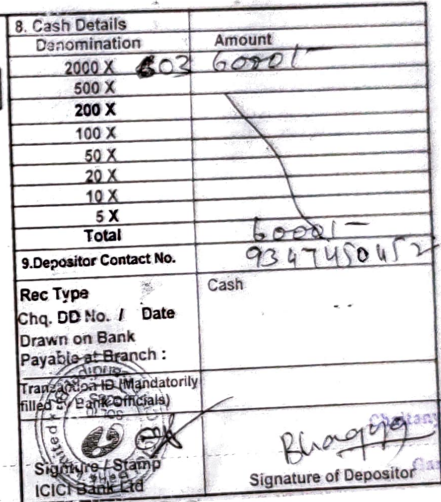 8. Cash Details
Denomination Amount
2000 X 03 6000/-
500 X
200 X
100 X
50 X
20 X
10 X
5 X
Total 6000/-
9.Depositor Contact No. 9347450452
Rec Type Cash
Chq. DD No. / Date
Drawn on Bank
Payable at Branch :
Transaction ID (Mandatorily
filled by Bank Officials)
Bhagya
Signture / Stamp Signature of Depositor
ICICI Bank Ltd